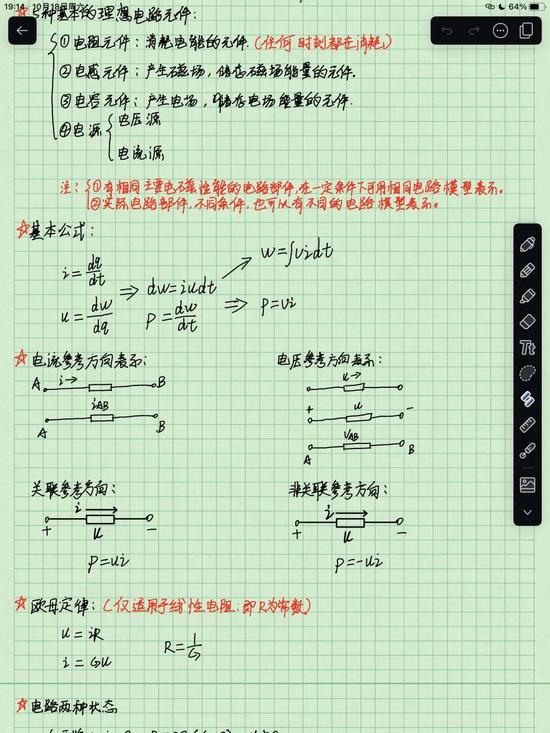 19:14 10月18日周六
64%
☆5种基本的理想电路元件:
①电阻元件:消耗电能的元件.(任何时刻都在消耗)
②电感元件:产生磁场,储存磁场能量的元件.
③电容元件:产生电场,储存电场能量的元件.
④电源{电压源
电流源
注:{①有相同主要电磁性能的电路部件,在一定条件下可用相同电路模型表示。
②实际电路部件,不同条件,也可以有不同的电路模型表示。
☆基本公式:
i=dq/dt
u=dw/dq
⇒ dw=iudt
p=dw/dt
w=∫uidt
⇒ p=ui
☆电流参考方向表示:
A i→ B
A iAB B
电压参考方向表示:
u→
+ u −
A VAB B
关联参考方向:
i
+ u −
p=ui
非关联参考方向:
i
+ u −
p=-ui
☆欧姆定律:(仅适用于线性电阻:即R为常数)
u=iR
i=Gu
R=1/G
☆电路两种状态
Tt